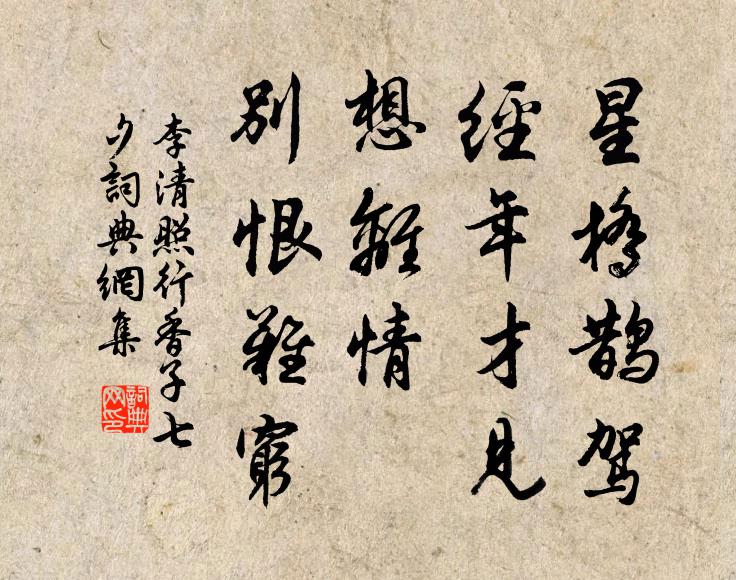 星橋鵲駕
經年才見
想離情
別恨難窮
李清照行香子七
夕詞典網集
詞典
网印